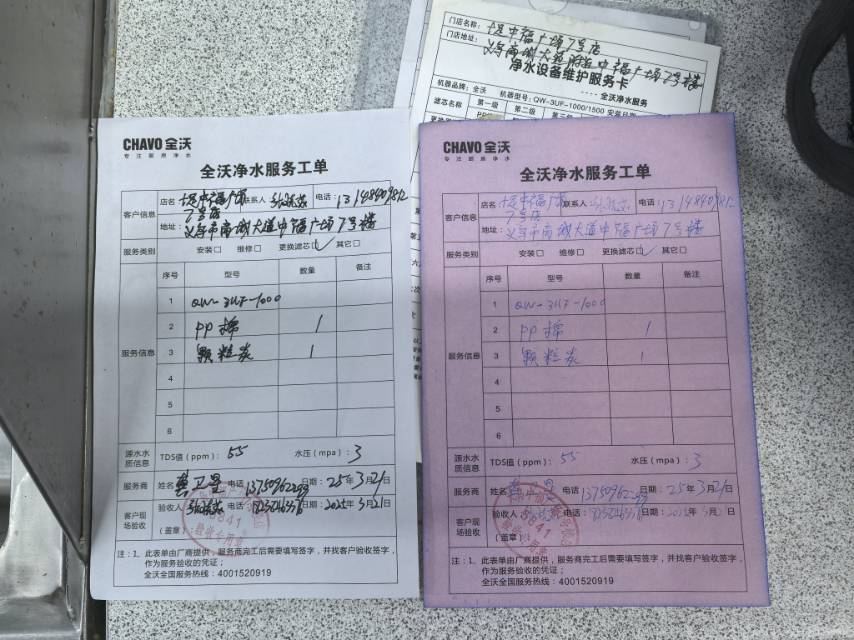 门店名称:
7号店
门店地址:
中福广场7号楼
净水设备维护服务卡
机器品牌:全沃 机器型号:QW-3UF-1000/1500 安装日期
全沃净水服务
滤芯名称 第一级 第二级
CHAVO全沃
专注厨房净水
全沃净水服务工单
客户信息
店名 联系人 电话:
7号店
地址:义乌市南城大道中福广场7号楼
服务类别 安装□ 维修□ 更换滤芯☑ 其它□
服务信息
序号 型号 数量 备注
1 QW-3UF-1000
2 PP棉 1
3 颗粒炭 1
4
5
6
源水水质信息
TDS值(ppm):55 水压(mpa):3
服务商 姓名 电话 日期:25年3月21日
客户现场验收
验收人 电话: 日期:2025年3月21日
(盖章):
注:1、此表单由厂商提供,服务商完工后需要填写签字,并找客户验收签字,
作为服务验收的凭证;
全沃全国服务热线:4001520919
CHAVO全沃
专注厨房净水
全沃净水服务工单
客户信息
店名 联系人 电话:
7号店
地址:义乌市南城大道中福广场7号楼
服务类别 安装□ 维修□ 更换滤芯☑ 其它□
服务信息
序号 型号 数量 备注
1 QW-3UF-1000
2 PP棉 1
3 颗粒炭 1
4
5
6
源水水质信息
TDS值(ppm):55 水压(mpa):3
服务商 姓名 电话 日期:25年3月21日
客户现场验收
验收人 电话: 日期:
(盖章):
注:1、此表单由厂商提供,服务商完工后需要填写签字,并找客户验收签字,
作为服务验收的凭证;
全沃全国服务热线:4001520919